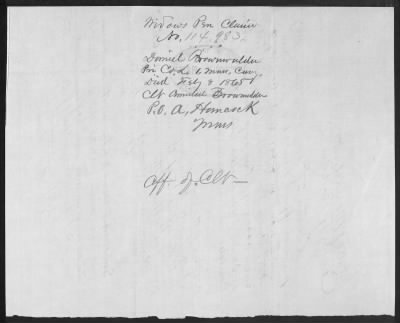 Widows Pen Claim
No. 114.983.
Daniel Brownwelder
Pri Co. L. 6 Cav.
Died Feby 8 1865
Clt Brownwelder
P.O. A, Hancock
Aff. of. Clt —